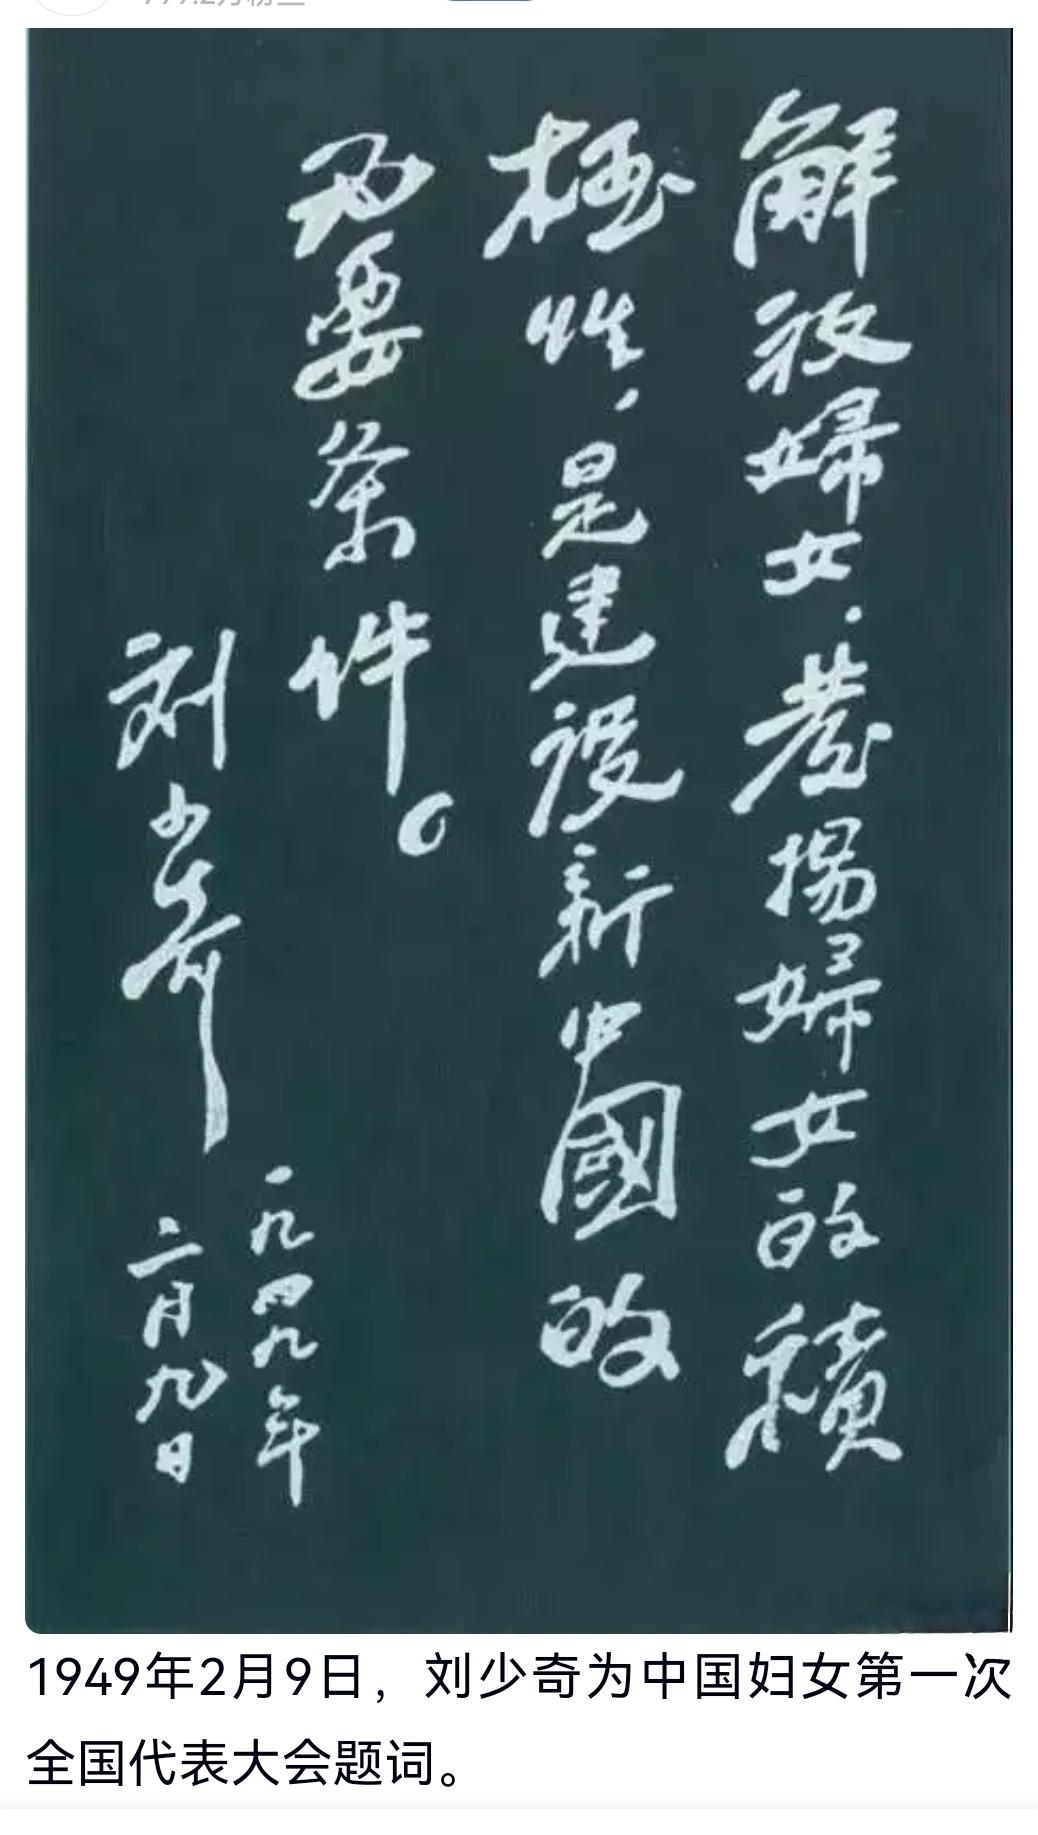 解放婦女．發揚婦女的積
極性，是建設新中國的
必要条件。
刘少奇
一九四九年
二月九日
1949年2月9日，刘少奇为中国妇女第一次
全国代表大会题词。